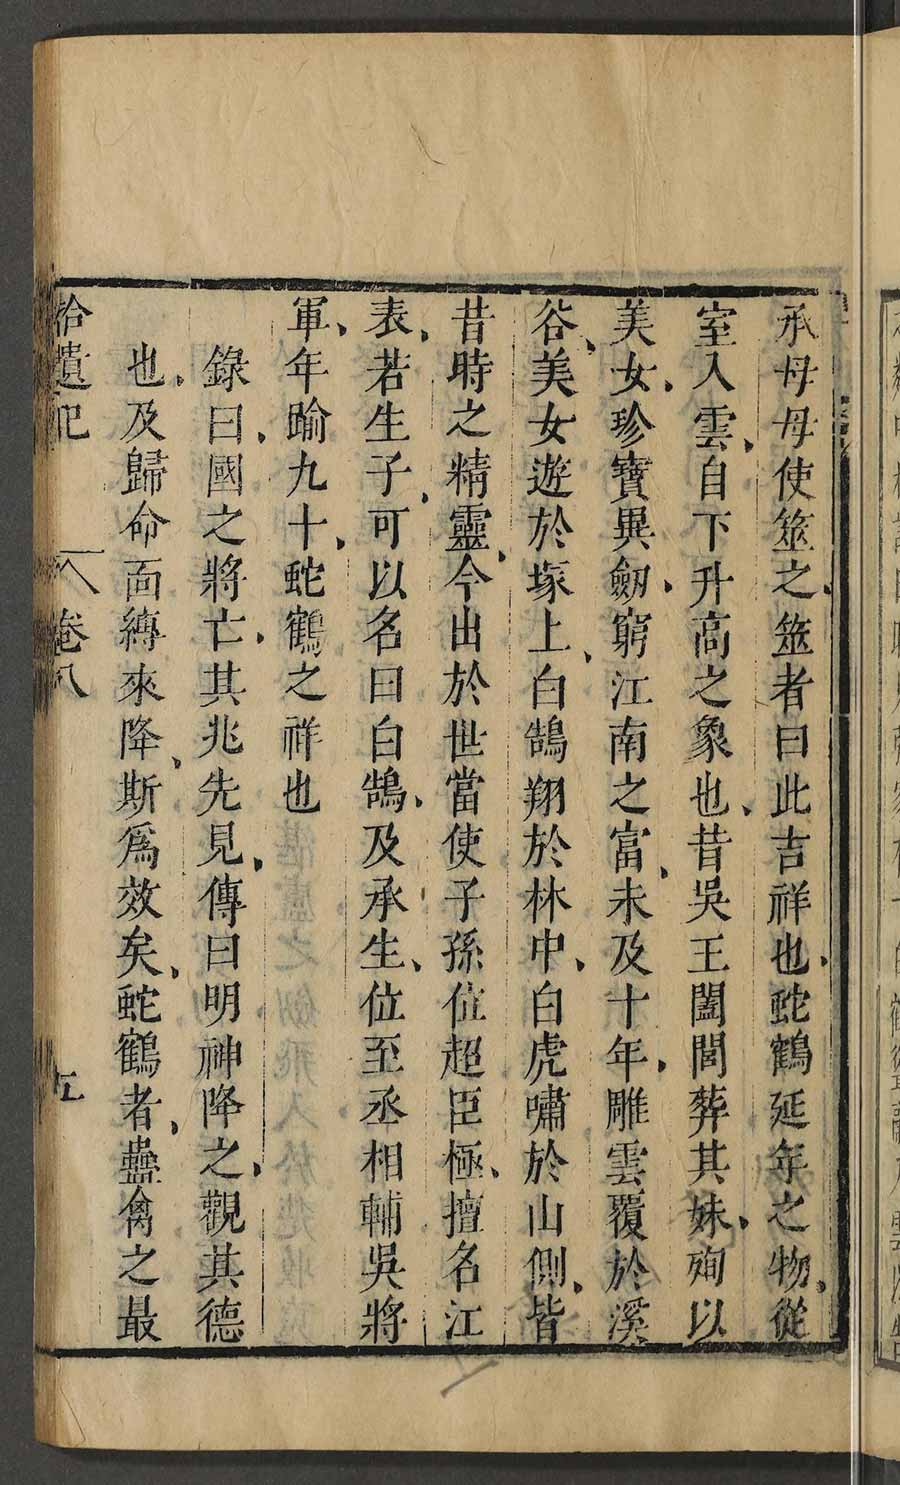 承母母使筮之筮者曰此吉祥也蛇鶴延年之物從
室入雲自下升高之象也昔吳王闔閭葬其妹殉以
美女珍寶異劒窮江南之富未及十年雕雲覆於溪
谷美女遊於塚上白鵠翔於林中白虎嘯於山側皆
昔時之精靈今出於世當使子孫位超臣極擅名江
表若生子可以名曰白鵠及承生位至丞相輔吳將
軍年踰九十蛇鶴之祥也
錄曰國之將亡其兆先見傳曰明神降之觀其德
也及歸命面縛來降斯爲效矣蛇鶴者蠱禽之最
拾遺記 卷八 五